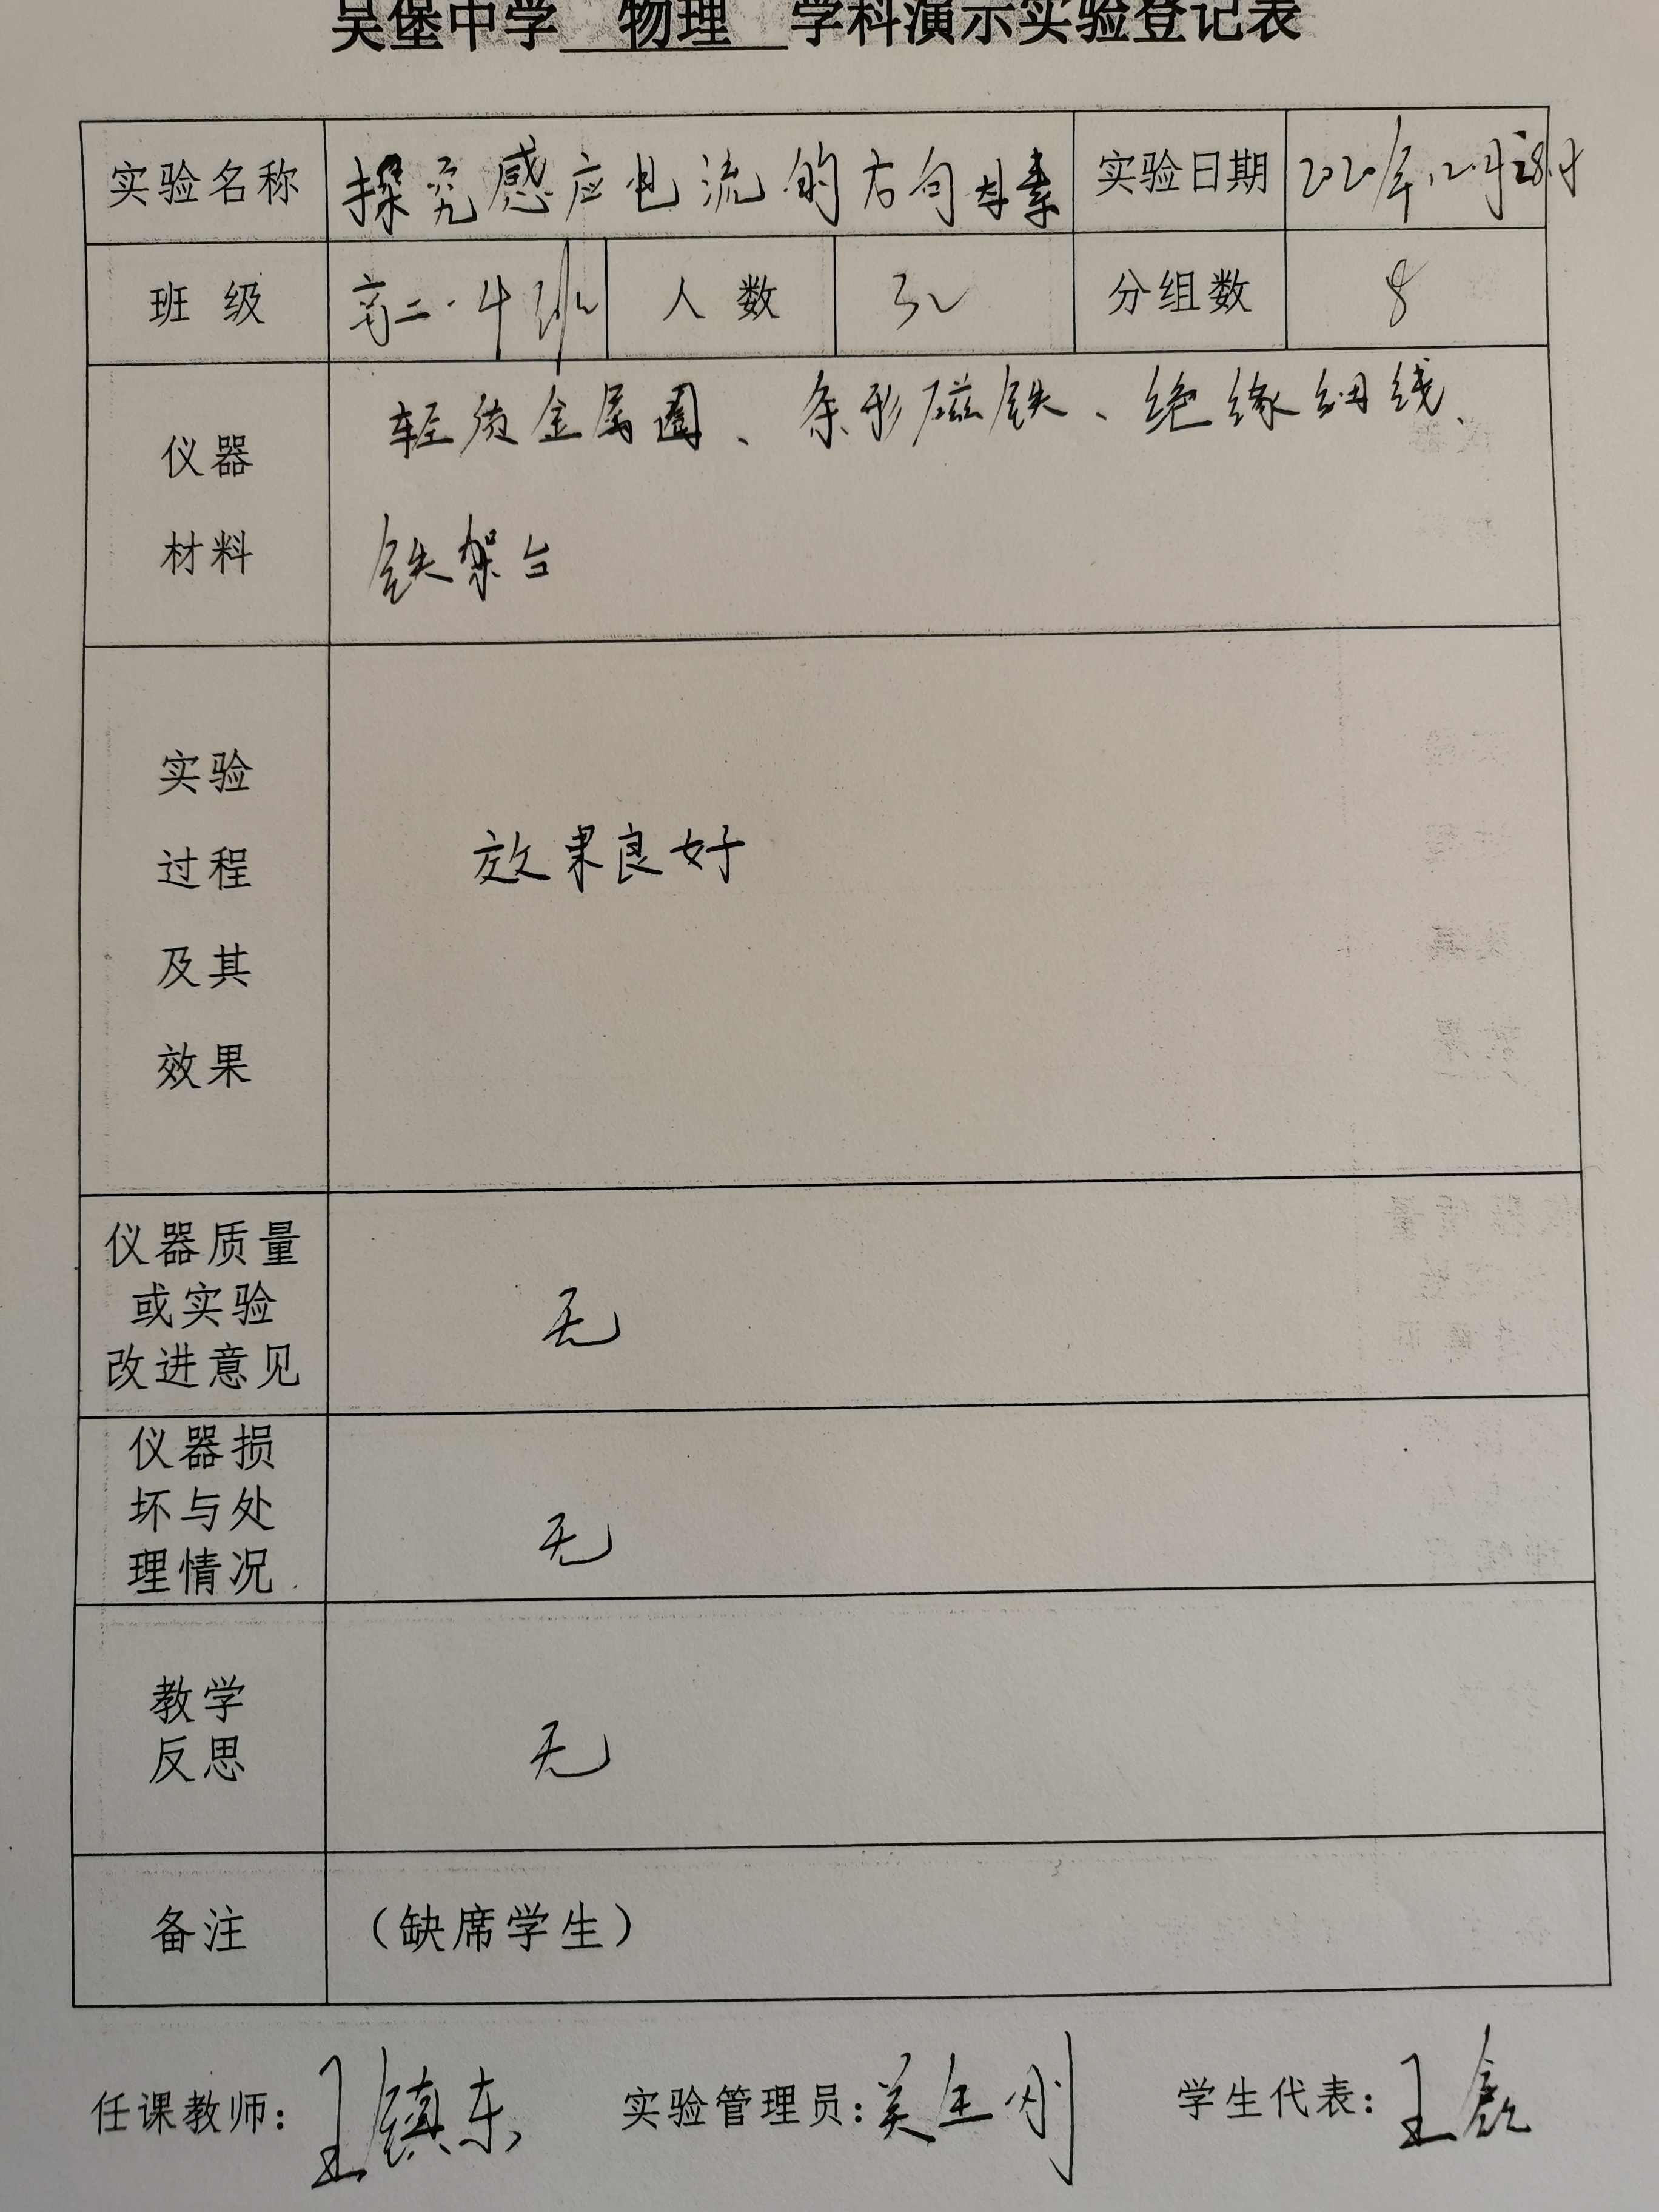 吴堡中学 物理 学科演示实验登记表
实验名称 探究感应电流的方向因素 实验日期 2020年12月28日
班级 高二·4班 人数 32 分组数 8
仪器 轻质金属圈、条形磁铁、绝缘细线、
材料 铁架台
实验
过程 效果良好
及其
效果
仪器质量
或实验 无
改进意见
仪器损
坏与处 无
理情况
教学 无
反思
备注 （缺席学生）
任课教师：王镇东 实验管理员：生刚 学生代表：王